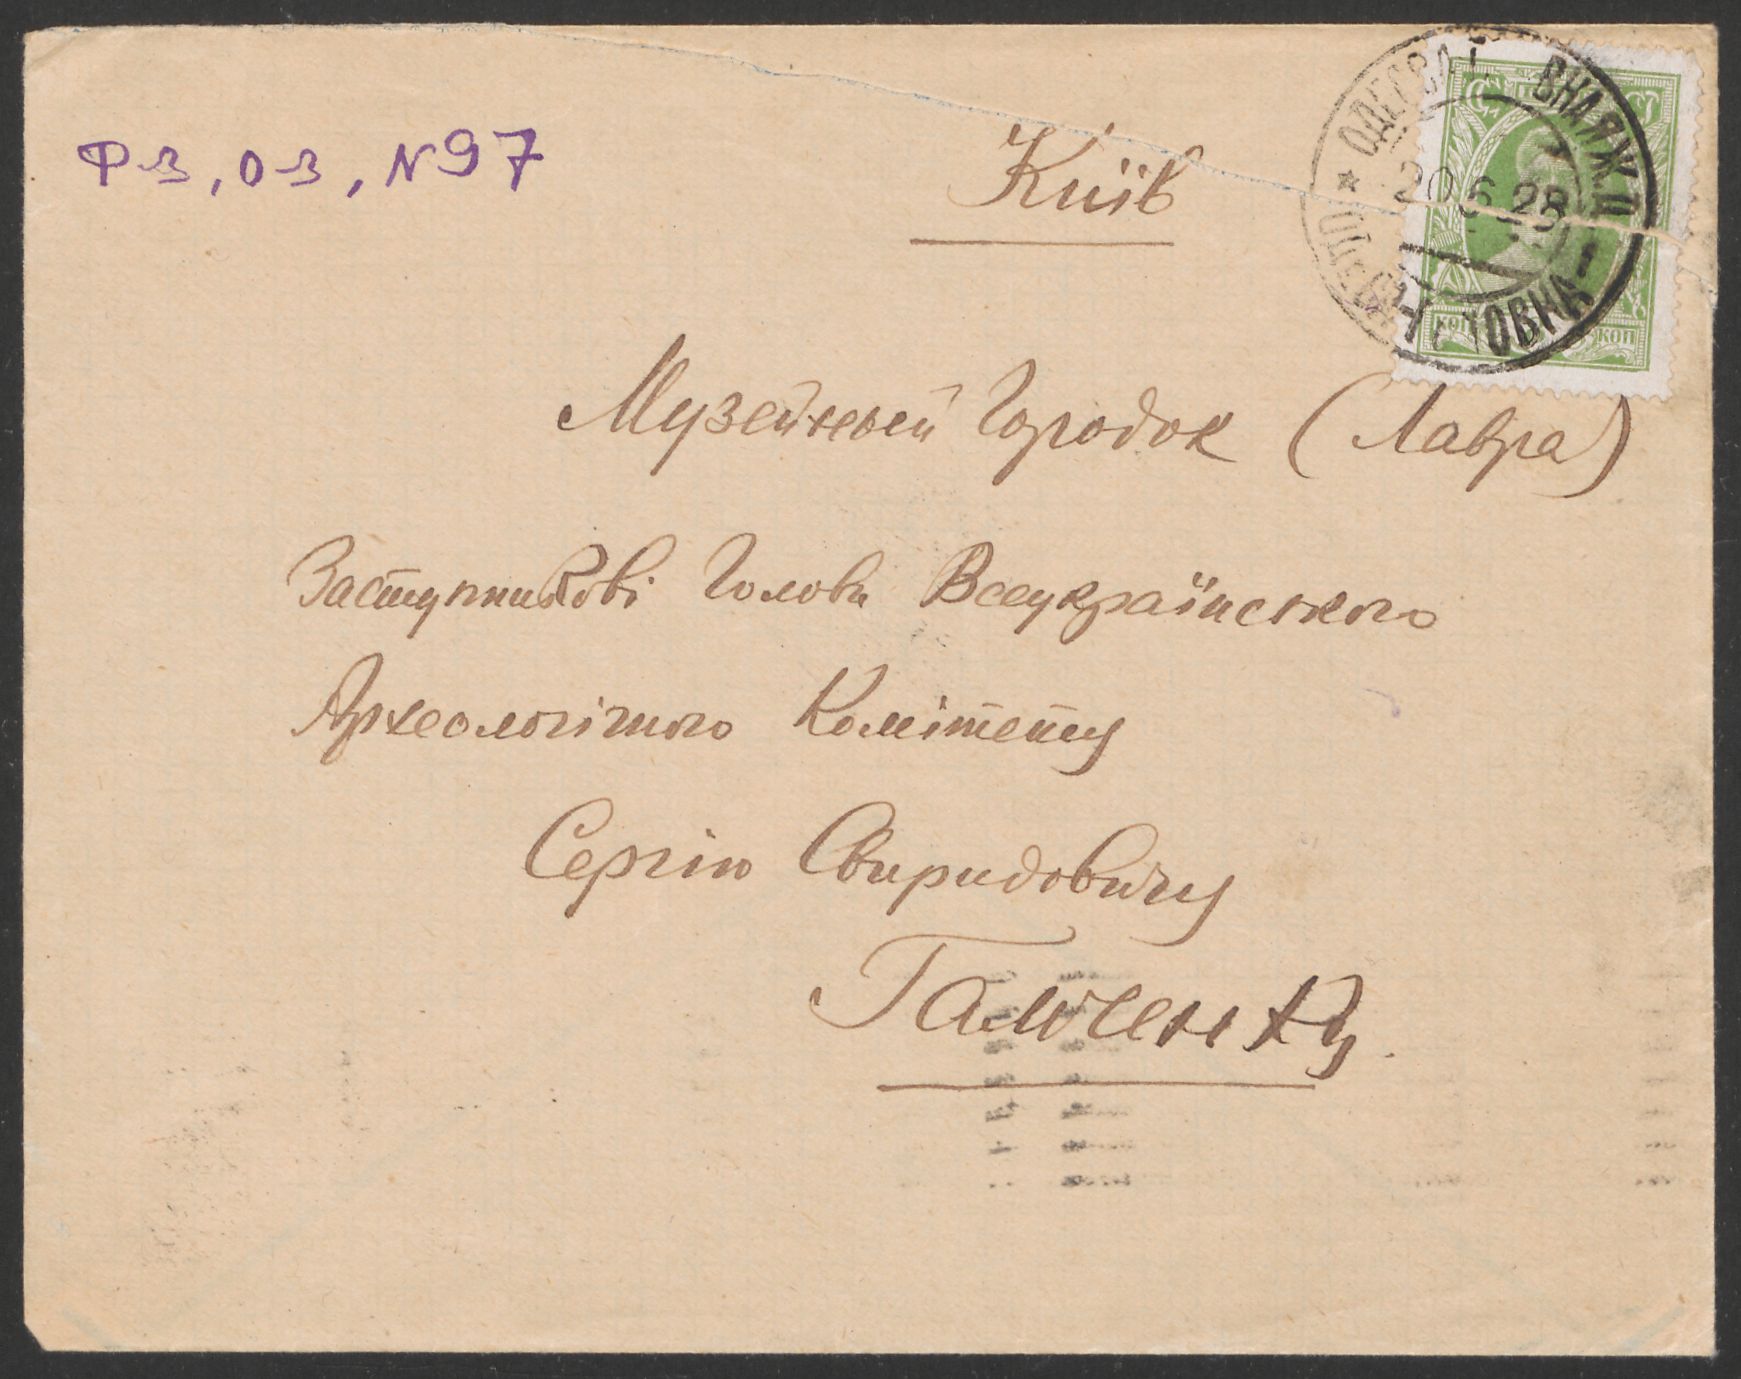 Ф-3, О-3, №97
Київ
20 6 28
КОП
Музейный Городок (Лавра)
Заступникові Голови Всеукраїнського
Археологічного Комітету
Сергію Свиридовичу
Гамченку.